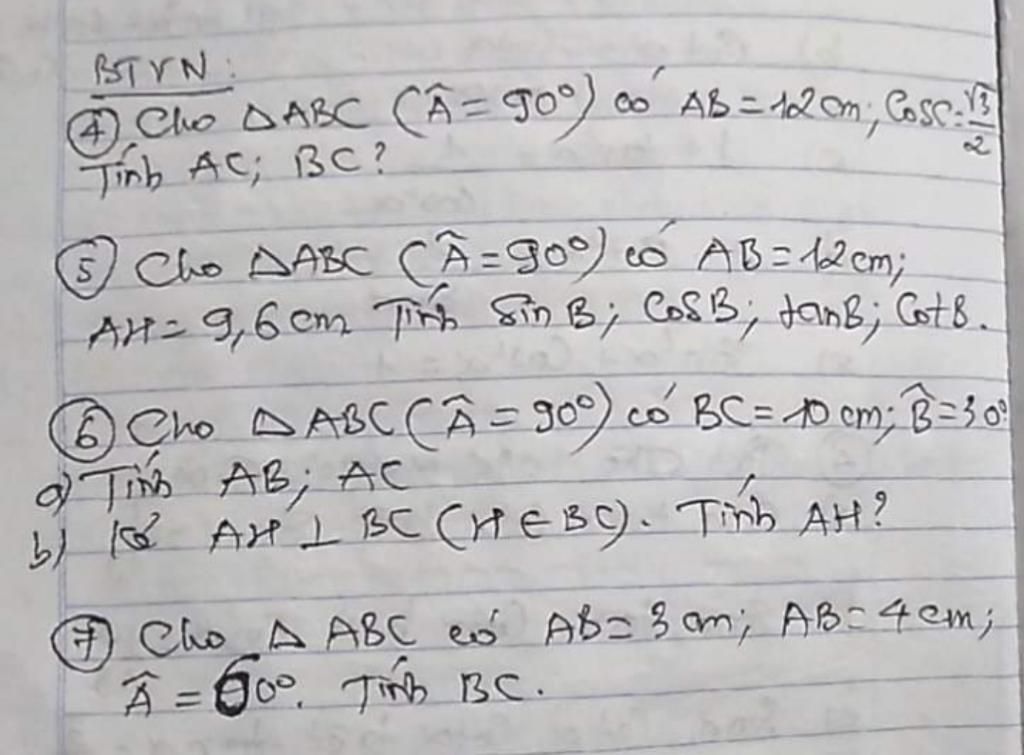 BTVN:
④ Cho △ABC (Â = 90°) có AB = 12cm; Cosc = √3/2
Tính AC; BC?
⑤ Cho △ABC (Â = 90°) có AB = 12cm;
AH = 9,6cm Tính Sin B; CosB; tanB; CotB.
⑥ Cho △ABC (Â = 90°) có BC = 10cm; B̂ = 30°
a) Tính AB; AC
b) Kẻ AH ⊥ BC (H ∈ BC). Tính AH?
⑦ Cho △ ABC có AB = 3cm; AB = 4cm;
Â = 60°. Tính BC.